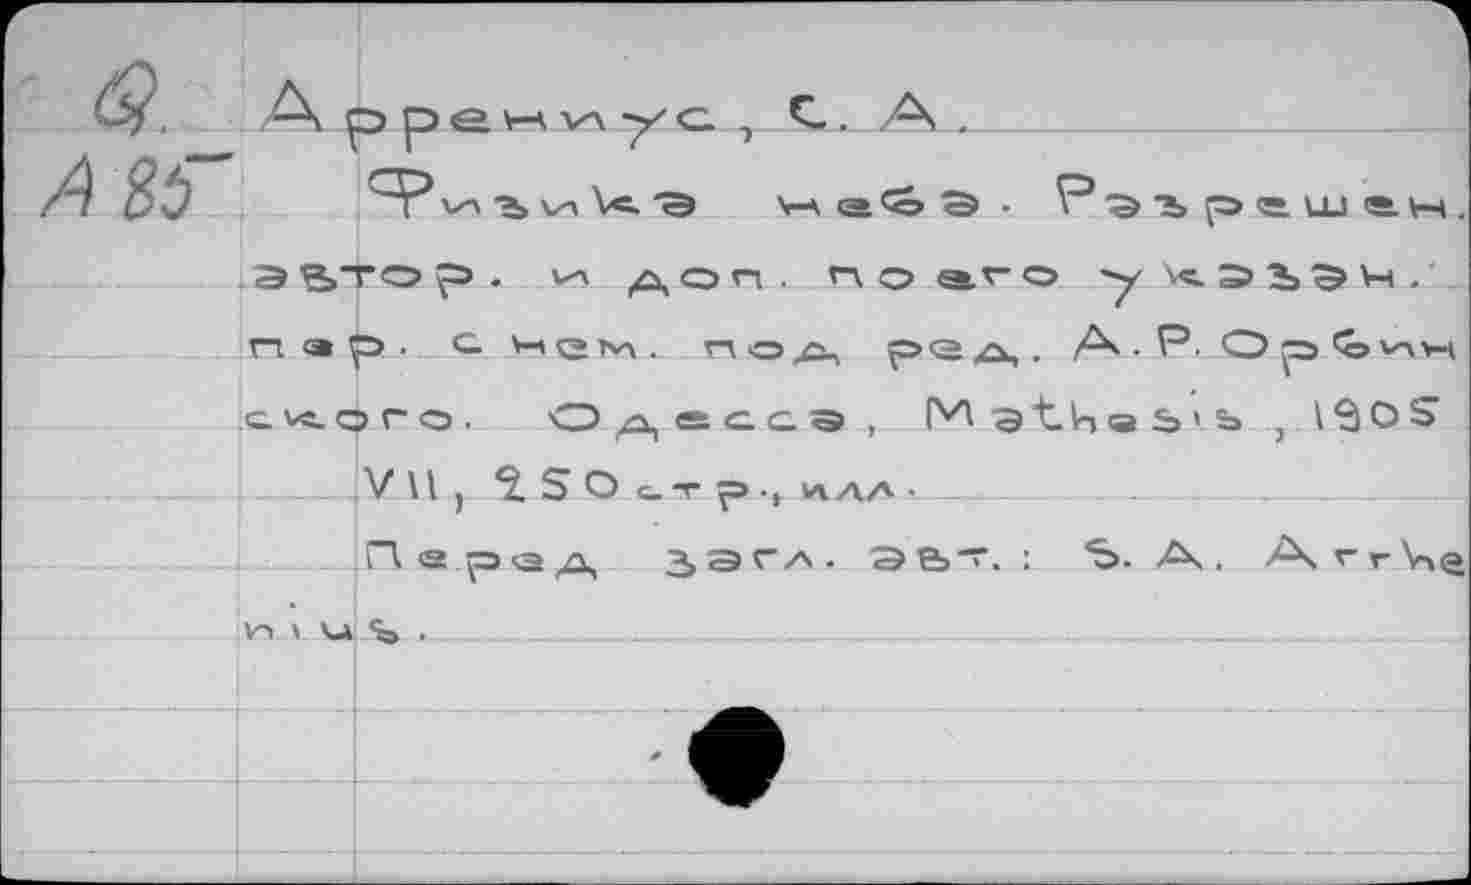 Q.
А85
Аррениус, С. А.
Физика неба. Разрешен.
автор. и доп. по его указан.
пер. с нем. под ред. А. Р. Орбин
ского. Одесса, Mathesis, 1905
VII, 250 стр., илл.
Перед загл. авт.: S. A. Arrhe
nius.